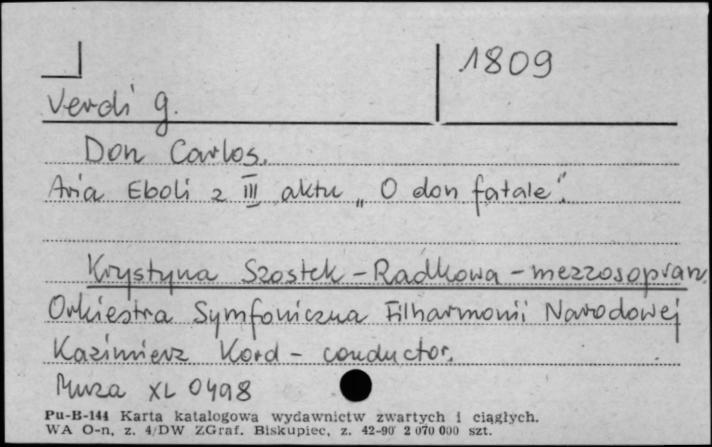 1809
Verdi G.
Don Carlos.
Aria Eboli z III aktu „O don fatale".
Krystyna Szostek-Radkowa - mezzosopran.
Orkiestra Symfoniczna Filharmonii Narodowej
Kazimierz Kord - conductor.
Muza XL 0498
Pu-B-144 Karta katalogowa wydawnictw zwartych i ciągłych.
WA O-n, z. 4/DW ZGraf. Biskupiec, z. 42-90 2 070 000 szt.